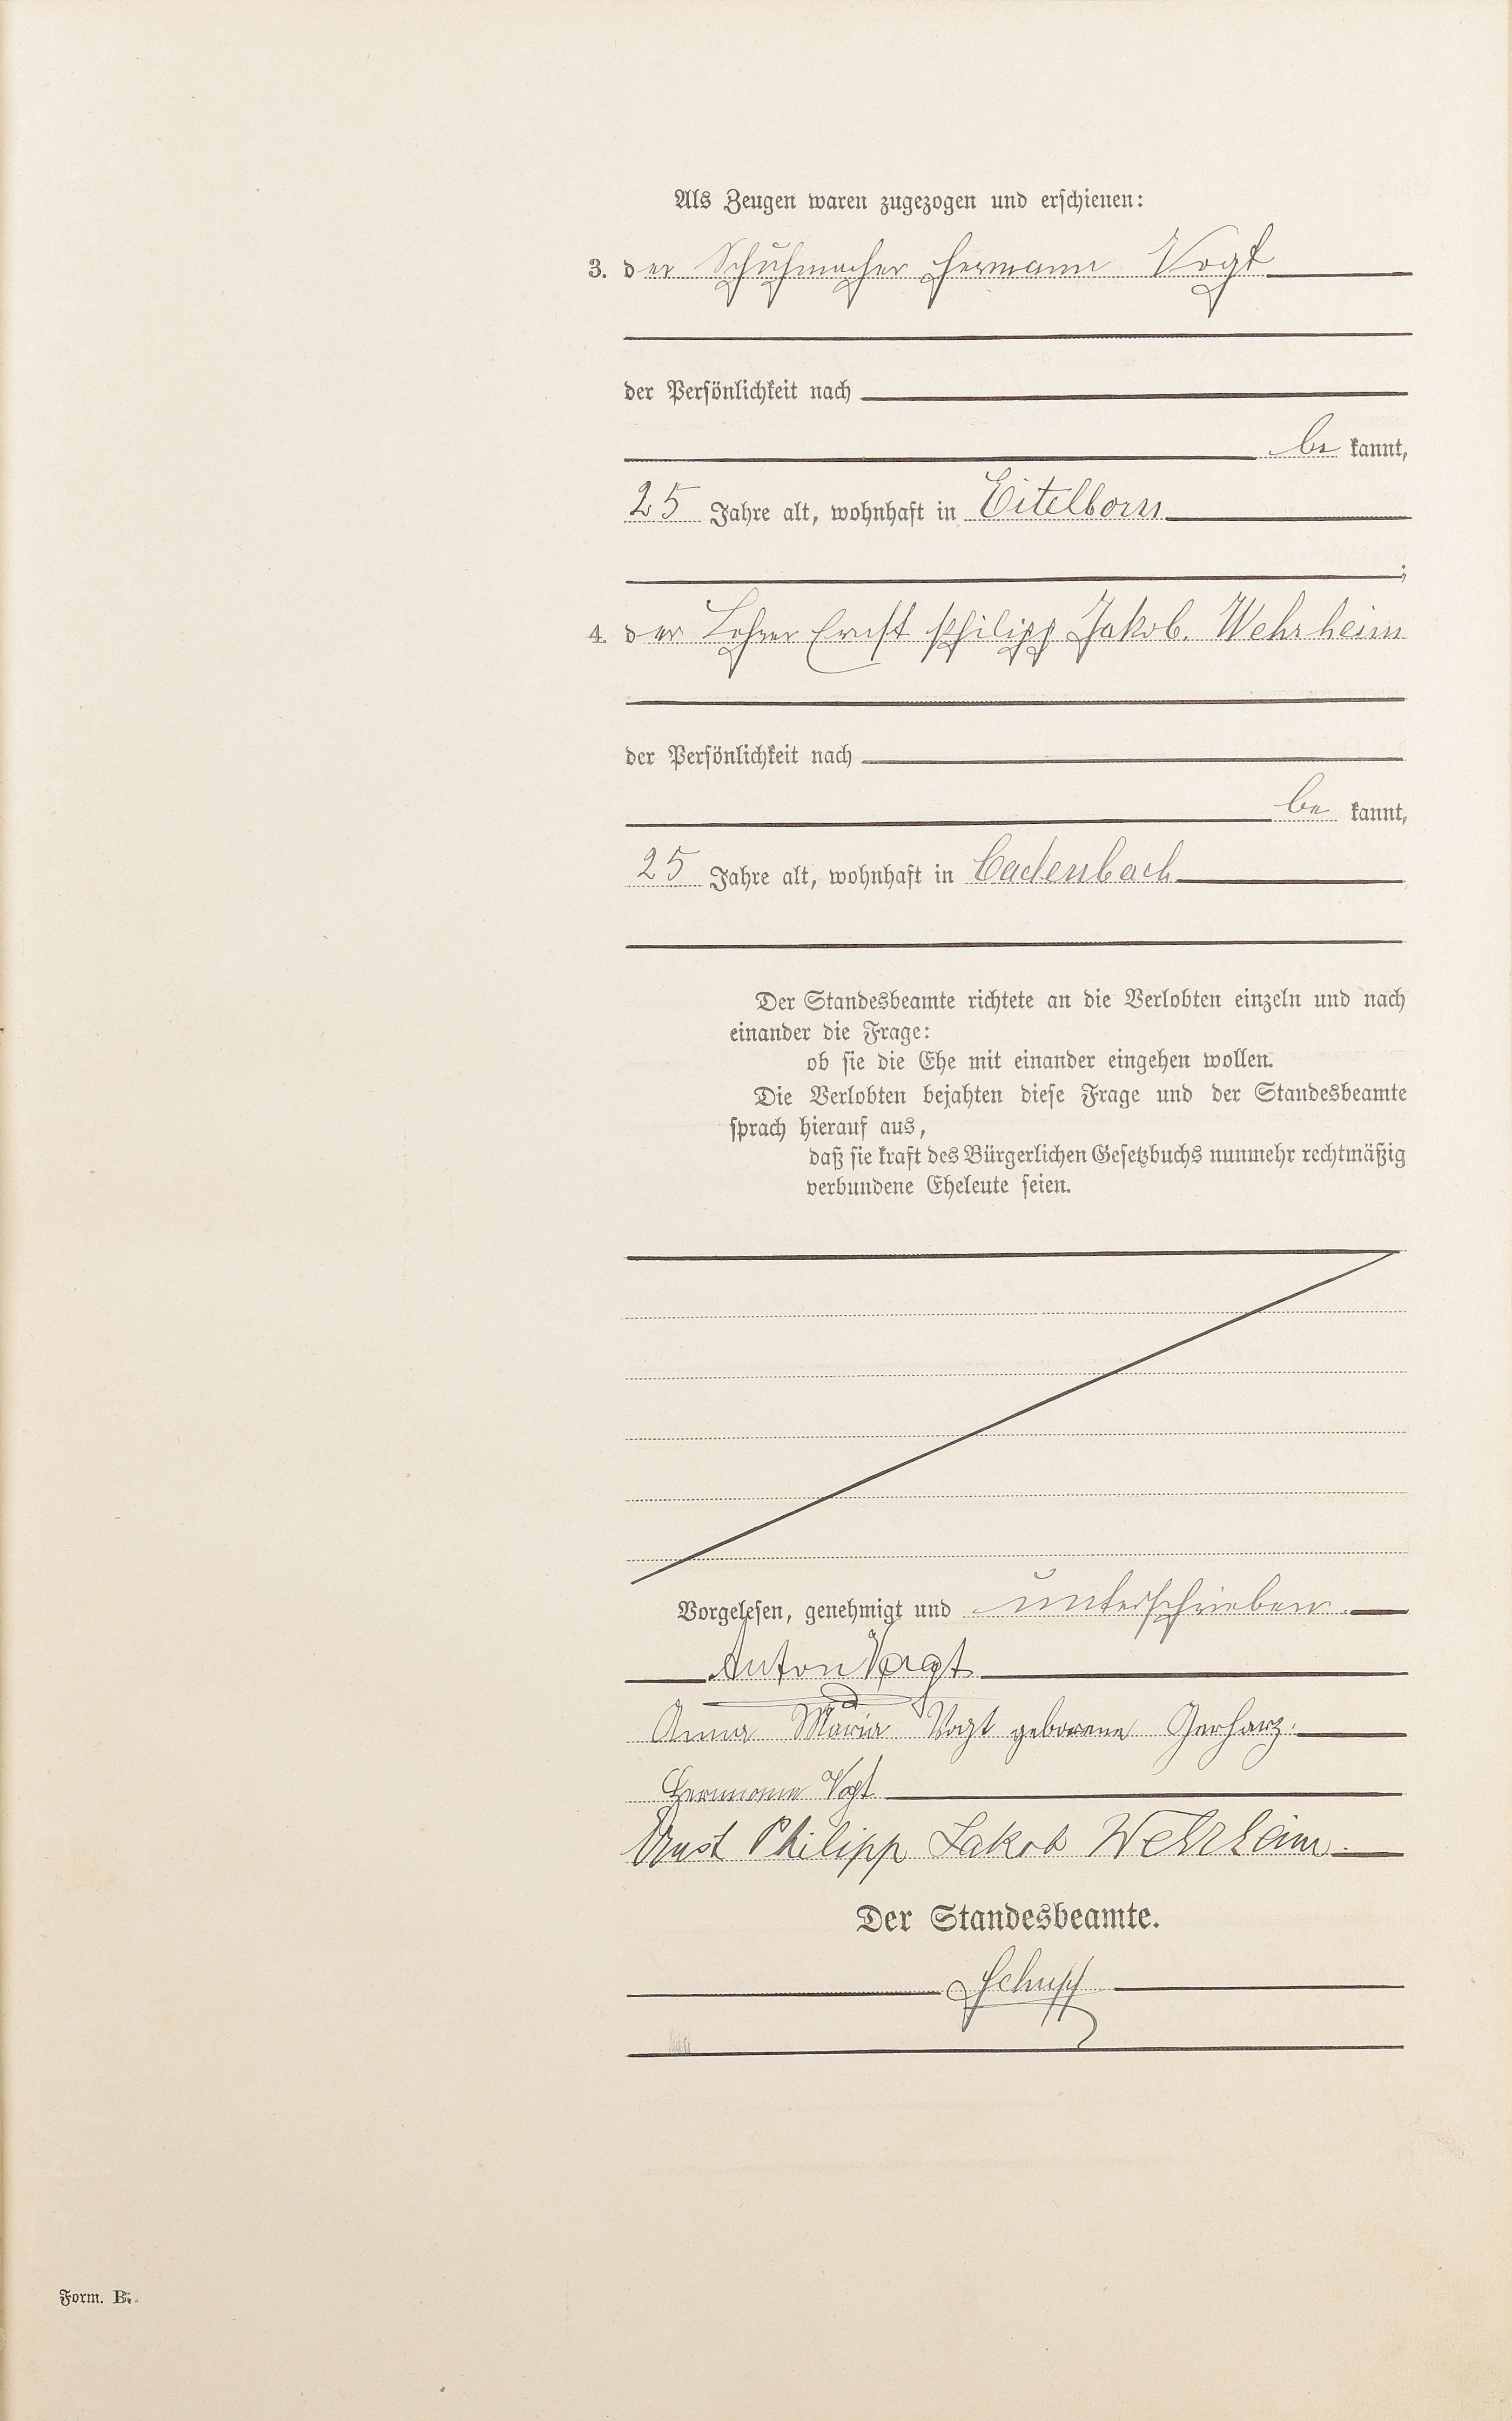 Als Zeugen waren zugezogen und erschienen:
3. der Schuhmacher Hermann Vogt
der Persönlichkeit nach
be kannt,
25 Jahre alt, wohnhaft in Eitelborn
;
4. der Lehrer Ernst Philipp Jakob Wehrheim
der Persönlichkeit nach
be kannt,
25 Jahre alt, wohnhaft in Cadenbach
Der Standesbeamte richtete an die Verlobten einzeln und nach
einander die Frage:
ob sie die Ehe mit einander eingehen wollen.
Die Verlobten bejahten diese Frage und der Standesbeamte
sprach hierauf aus,
daß sie kraft des Bürgerlichen Gesetzbuchs nunmehr rechtmäßig
verbundene Eheleute seien.
Vorgelesen, genehmigt und unterschrieben.
Anton Vogt
Anna Maria Vogt geborene Gerharz.
Hermann Vogt
Ernst Philipp Jakob Wehrheim.
Der Standesbeamte.
Schupp
Form. B.